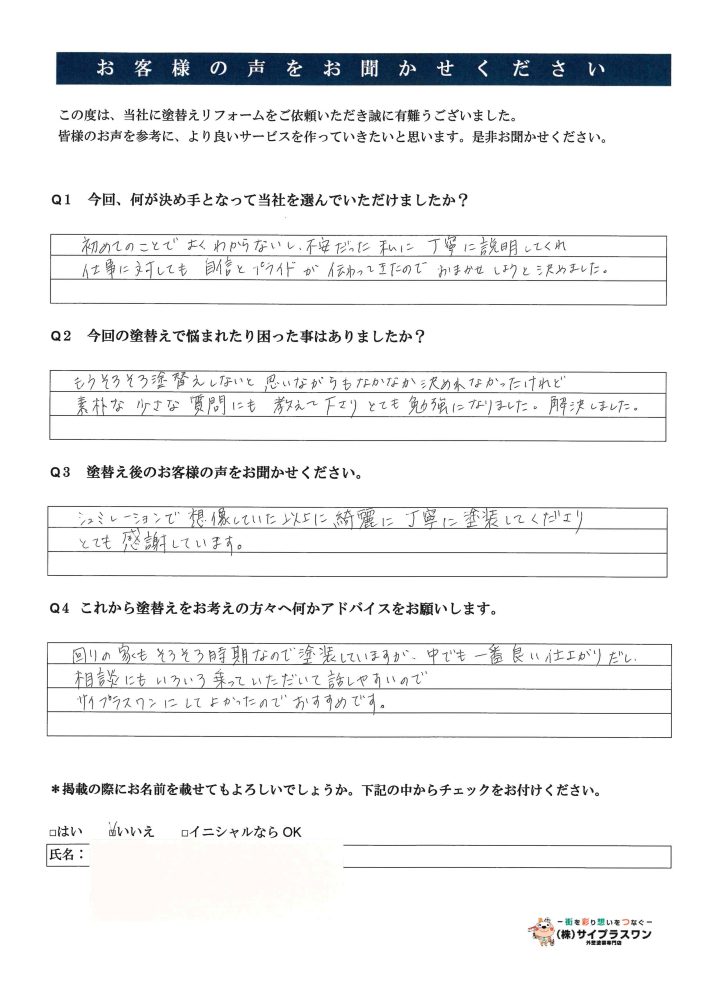 お客様の声をお聞かせください
この度は、当社に塗替えリフォームをご依頼いただき誠に有難うございました。
皆様のお声を参考に、より良いサービスを作っていきたいと思います。是非お聞かせください。
Q1 今回、何が決め手となって当社を選んでいただけましたか？
初めてのことで よくわからないし、不安だった 私に 丁寧に説明してくれ
仕事に対しても 自信とプライドが 伝わってきたので おまかせしようと決めました。
Q2 今回の塗替えで悩まれたり困った事はありましたか？
もうそろそろ塗替えしないと 思いながらもなかなか決めれなかったけれど
素朴な 小さな 質問にも 教えて下さり とても 勉強になりました。解決しました。
Q3 塗替え後のお客様の声をお聞かせください。
シュミレーションで 想像していた以上に 綺麗に 丁寧に塗装してくださり
とても 感謝しています。
Q4 これから塗替えをお考えの方々へ何かアドバイスをお願いします。
回りの家もそろそろ時期なので塗装していますが、中でも 一番良い仕上がりだし、
相談にも いろいろ 乗っていただいて 話しやすいので
サイプラスワンにして よかったので おすすめです。
＊掲載の際にお名前を載せてもよろしいでしょうか。下記の中からチェックをお付けください。
□はい ☑いいえ □イニシャルなら OK
氏名：
－街を彩り想いをつなぐ－
(株)サイプラスワン
外壁塗装専門店